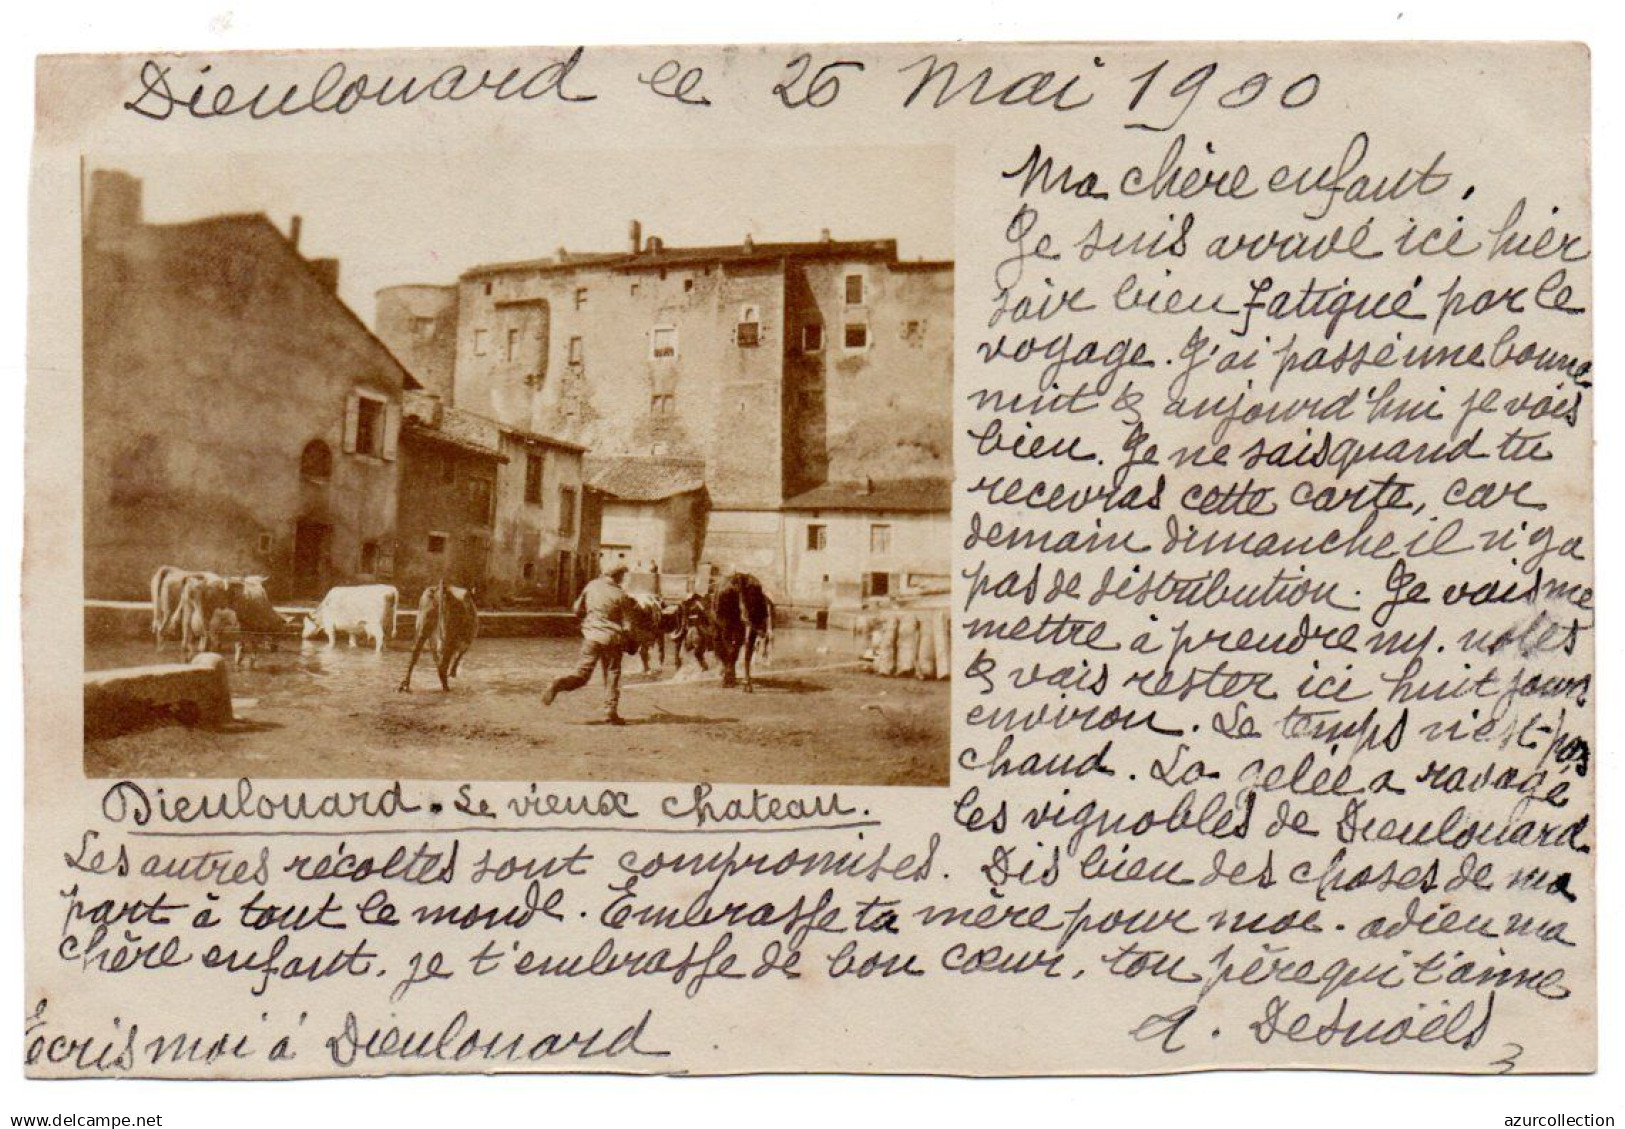 Dieulouard le 26 Mai 1900
Ma chère enfant,
Je suis arrivé ici hier
soir bien fatigué par le
voyage. J'ai passé une bonne
nuit & aujourd'hui je vais
bien. Je ne sais quand tu
recevras cette carte, car
demain dimanche il n'y a
pas de distribution. Je vais me
mettre à prendre my. notes
& vais rester ici huit jours
environ. Le temps n'est pas
chaud. La gelée a ravagé
les vignobles de Dieulouard.
Dieulouard. Le vieux chateau.
Les autres récoltes sont compromises. Dis bien des choses de ma
part à tout le monde. Embrasse ta mère pour moi. adieu ma
chère enfant, je t'embrasse de bon cœur, ton père qui t'aime
A. Desnoëls
Ecris moi à Dieulouard.
www.delcampe.net
azurcollection